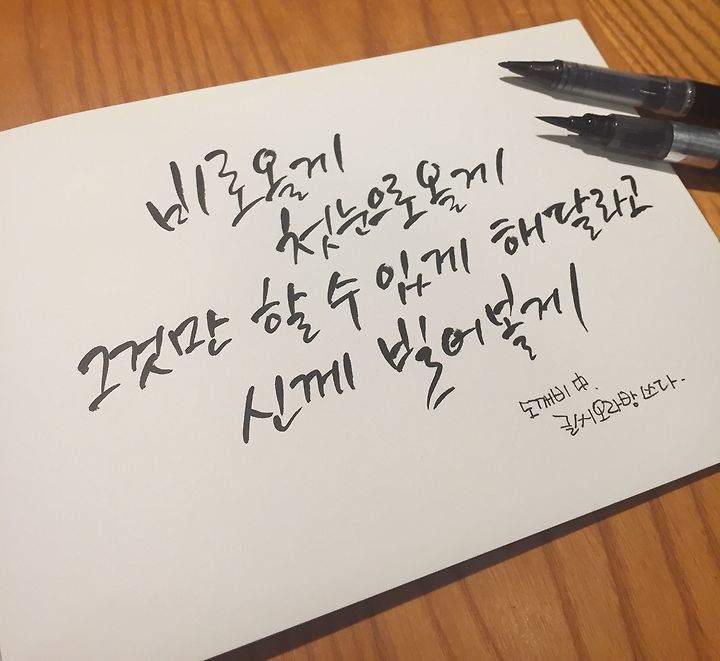 비로 올게
첫눈으로 올게
그것만 할 수 있게 해달라고
신께 빌어볼게
도깨비 中.
글씨오라방 쓰다.